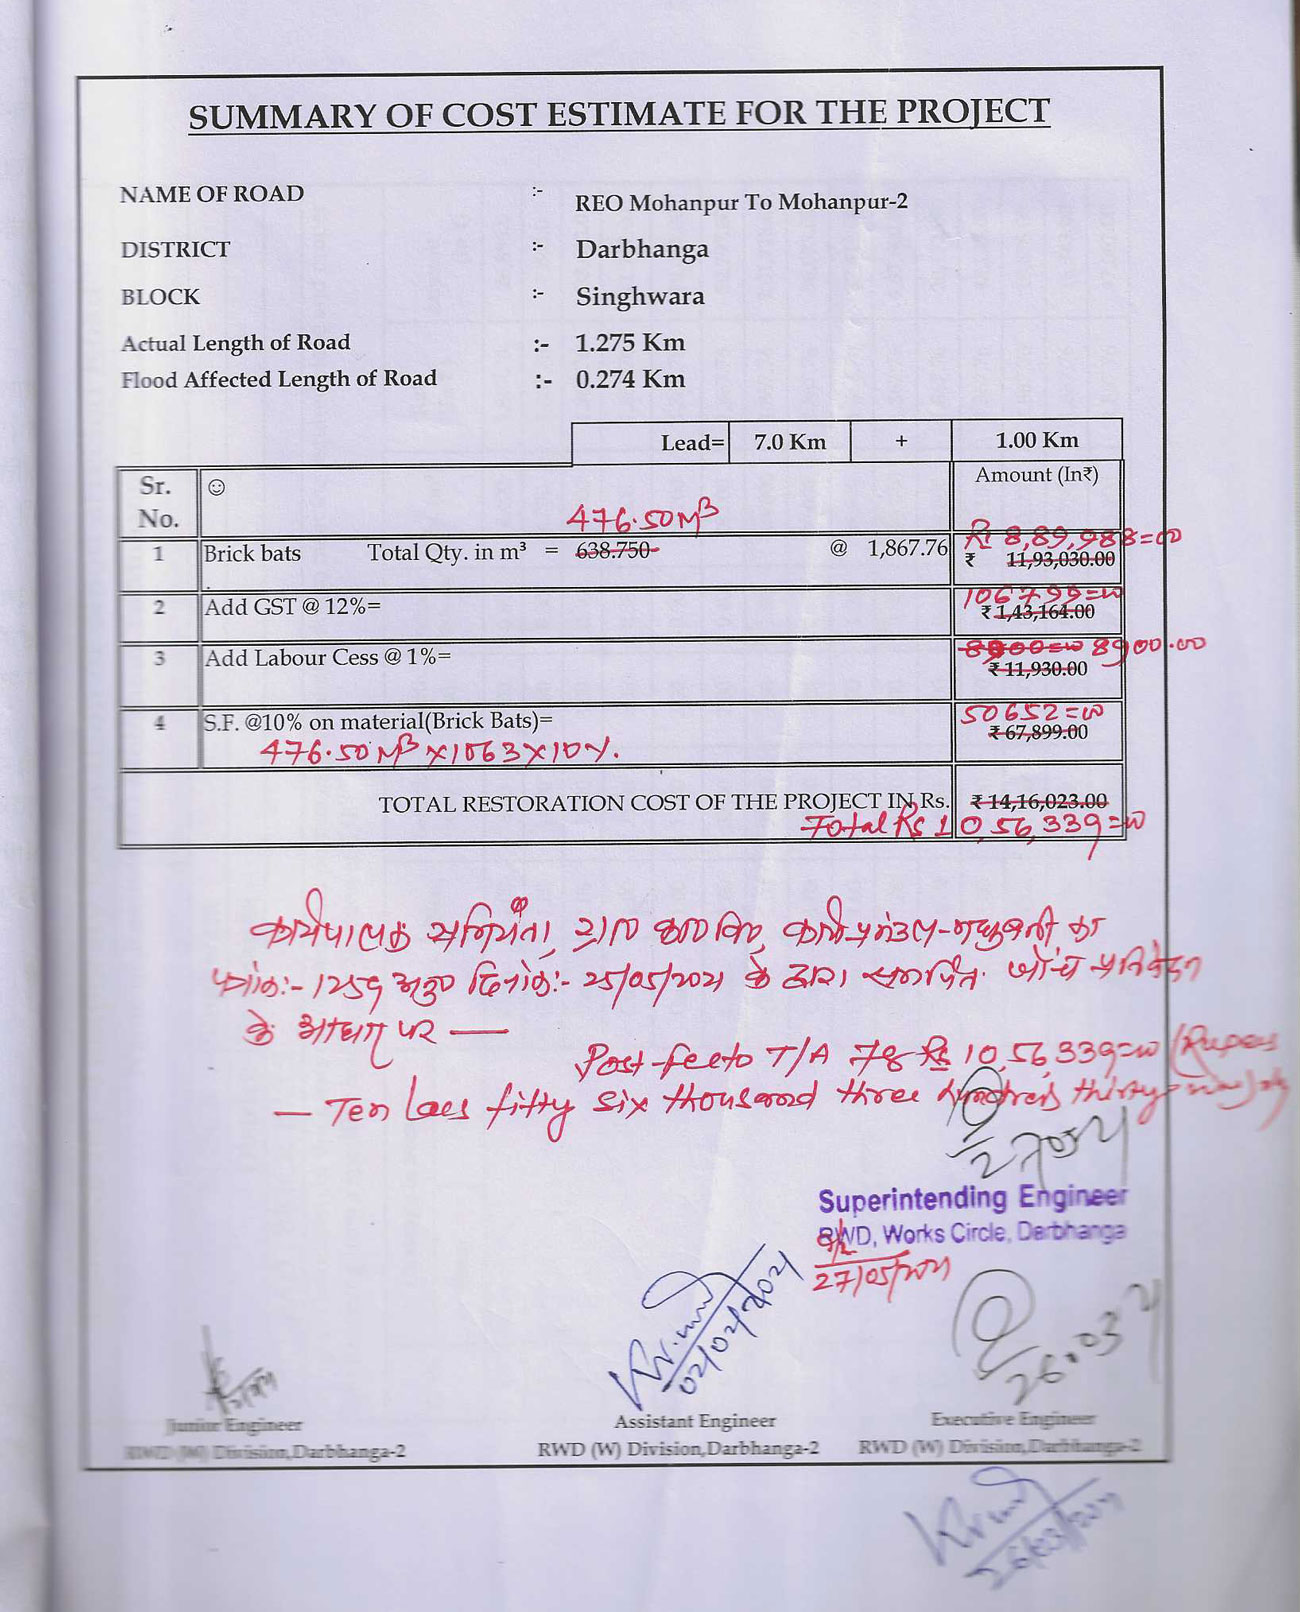 SUMMARY OF COST ESTIMATE FOR THE PROJECT
NAME OF ROAD :- REO Mohanpur To Mohanpur-2
DISTRICT :- Darbhanga
BLOCK :- Singhwara
Actual Length of Road :- 1.275 Km
Flood Affected Length of Road :- 0.274 Km
Lead= 7.0 Km + 1.00 Km
Sr. No. ☺ Amount (In₹)
476.50 M³
Rs 8,89,988=00
1 Brick bats Total Qty. in m³ = 638.750 @ 1,867.76 ₹ 11,93,030.00
106799=00
2 Add GST @ 12%= ₹ 1,43,164.00
8900=00 8900.00
3 Add Labour Cess @ 1%= ₹ 11,930.00
50652=00
4 S.F. @10% on material(Brick Bats)= ₹ 67,899.00
476.50 M³ x 1063 x 10%.
TOTAL RESTORATION COST OF THE PROJECT IN Rs. ₹ 14,16,023.00
Total Rs 10,56,339=00
कार्यपालक अभियंता, का
:- 1259 अनु० दिनांक:- 25/05/2021 के द्वारा समर्पित जाँच प्रतिवेदन
के आधार पर —
Post-facto T/A Rs 10,56,339=00 (Rupees
— Ten Lacs fifty six thousand three hundred thirty nine only
Superintending Engineer
RWD, Works Circle, Darbhanga
27/05/2021
02/02/2021
Junior Engineer Assistant Engineer Executive Engineer
RWD (W) Division,Darbhanga-2 RWD (W) Division,Darbhanga-2 RWD (W) Division,Darbhanga-2
26/03/2021